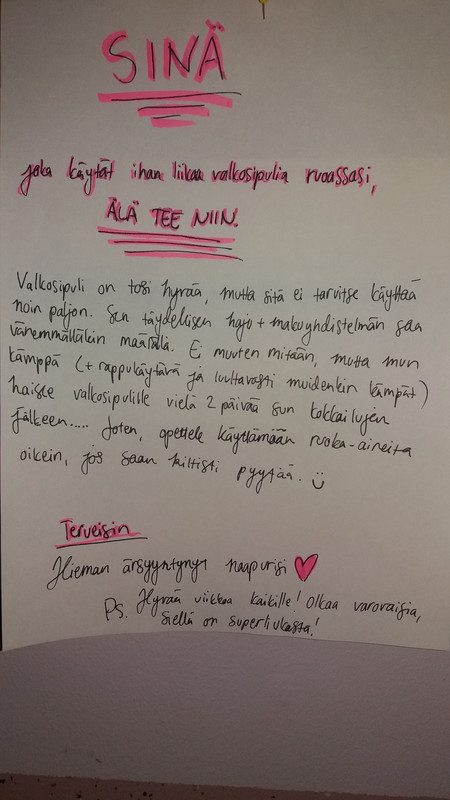 SINÄ
joka käytät ihan liikaa valkosipulia ruoassasi,
ÄLÄ TEE NIIN.
Valkosipuli on tosi hyvää, mutta sitä ei tarvitse käyttää
noin paljon. Sen täydellisen haju + makuyhdistelmän saa
vähemmälläkin määrällä. Ei muuten mitään, mutta mun
kämppä (+ rappukäytävä ja luultavasti muidenkin kämpät)
haisee valkosipulille vielä 2 päivää sun kokkailujen
jälkeen..... Joten, opettele käyttämään ruoka-aineita
oikein, jos saan kiltisti pyytää. :)
Terveisin
Hieman ärsyyntynyt naapurisi ♥
Ps. Hyvää viikkoa kaikille! Olkaa varovaisia,
siellä on superliukasta!